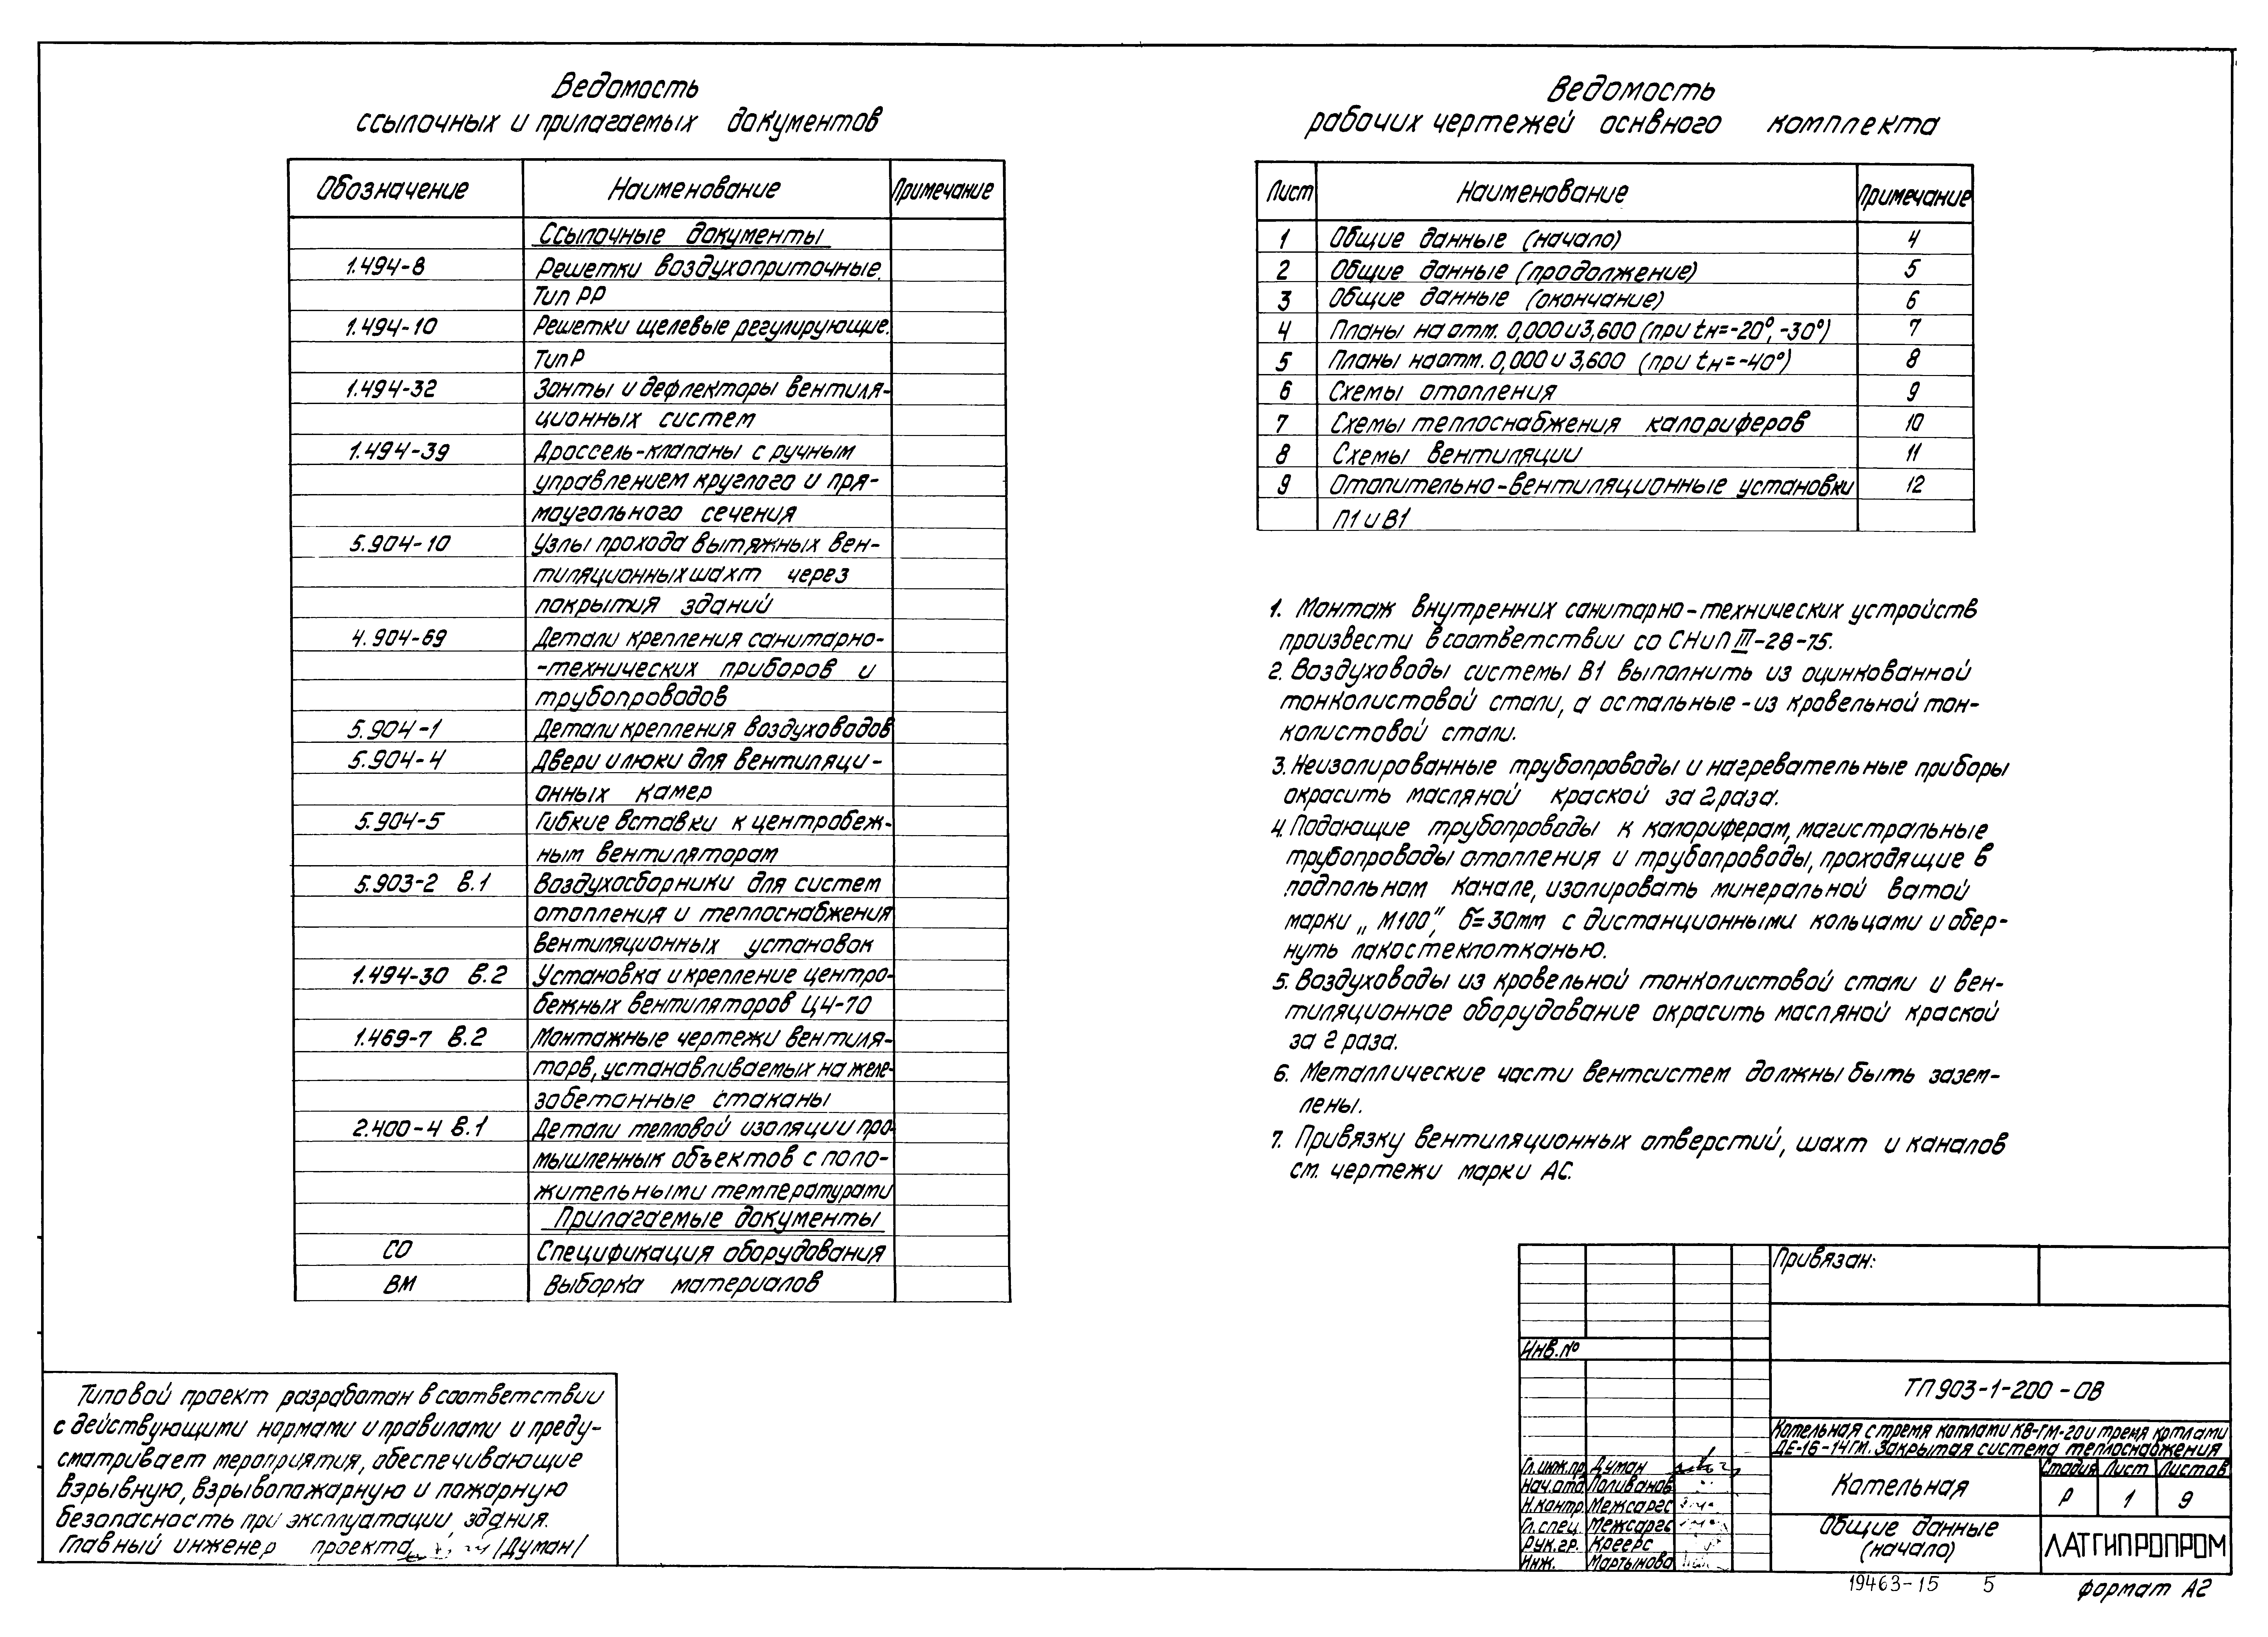 Ведомость
ссылочных и прилагаемых документов
Обозначение Наименование Примечание
Ссылочные документы
1.494-8 Решетки воздухоприточные.
Тип РР
1.494-10 Решетки щелевые регулирующие.
Тип Р
1.494-32 Зонты и дефлекторы вентиля-
ционных систем
1.494-39 Дроссель-клапаны с ручным
управлением круглого и пря-
моугольного сечения
5.904-10 Узлы прохода вытяжных вен-
тиляционных шахт через
покрытия зданий
4.904-69 Детали крепления санитарно-
-технических приборов и
трубопроводов
5.904-1 Детали крепления воздуховодов
5.904-4 Двери и люки для вентиляци-
онных камер
5.904-5 Гибкие вставки к центробеж-
ным вентиляторам
5.903-2 в.1 Воздухосборники для систем
отопления и теплоснабжения
вентиляционных установок
1.494-30 в.2 Установка и крепление центро-
бежных вентиляторов Ц4-70
1.469-7 в.2 Монтажные чертежи вентиля-
торв, устанавливаемых на желе-
забетонные стаканы
2.400-4 в.1 Детали тепловой изоляции про-
мышленнык объектов с поло-
жительными температурами
Прилагаемые документы
СО Спецификация оборудования
ВМ Выборка материалов
Ведомость
рабочих чертежей оснвного комплекта
Лист Наименование Примечание
1 Общие данные (начало) 4
2 Общие данные (продолжение) 5
3 Общие данные (окончание) 6
4 Планы на отм. 0,000 и 3,600 (при tн=-20°,-30°) 7
5 Планы на отм. 0,000 и 3,600 (при tн=-40°) 8
6 Схемы отопления 9
7 Схемы теплоснабжения калориферов 10
8 Схемы вентиляции 11
9 Отопительно-вентиляционные установки 12
П1 и В1
1. Монтаж внутренних санитарно-технических устройств
произвести в соответствии со СНиП III-28-75.
2. Воздуховоды системы В1 выполнить из оцинкованной
тонколистовой стали, а остальные - из кровельной тон-
колистовой стали.
3. Неизолированные трубопроводы и нагревательные приборы
окрасить масляной краской за 2 раза.
4. Подающие трубопроводы к калориферам, магистральные
трубопроводы отопления и трубопроводы, проходящие в
подпольном канале, изолировать минеральной ватой
марки „М100", δ=30мм с дистанционными кольцами и обер-
нуть лакостеклотканью.
5. Воздуховоды из кровельной тонколистовой стали и вен-
тиляционное оборудование окрасить масляной краской
за 2 раза.
6. Металлические части вентсистем должны быть зазем-
лены.
7. Привязку вентиляционных отверстий, шахт и каналов
см. чертежи марки АС.
Типовой проект разработан в соответствии
с действующими нормами и правилами и преду-
сматривает мероприятия, обеспечивающие
взрывную, взрывопожарную и пожарную
безопасность при эксплуатации здания.
Главный инженер проекта /Думан/
Привязан:
Инв.№
ТП 903-1-200-ОВ
Котельная с тремя котлами КВ-ГМ-20 и тремя котлами
ДЕ-16-14ГМ. Закрытая система теплоснабжения
Гл.инж.пр. Думан
Нач.отд. Поливанов
Н.контр. Межсаргс
Гл.спец. Межсаргс
Рук.гр. Креерс
Инж. Мартынова
Котельная
Стадия Лист Листов
Р 1 9
Общие данные
(начало)
ЛАТГИПРОПРОМ
19463-15 5
формат А2